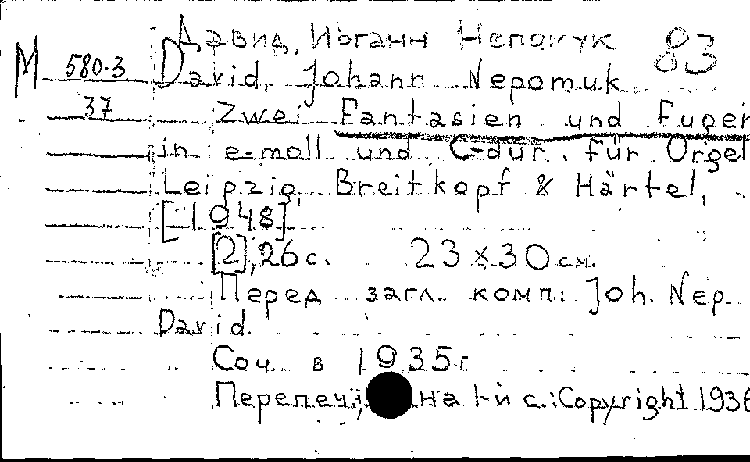 Давид, Иоганн Непомук 83
М 580-3 David, Johann Nepomuk
37 Zwei Fantasien und Fugen
in e-moll und C-dur. für Orgel
Leipzig, Breitkopf & Härtel,
[1948]
[2], 26 с. 23 x 30 см.
Перед загл. комп.: Joh. Nep.
David.
Соч. в 1935 г.
Перепеч., на 1-й с.: Copyright 1936